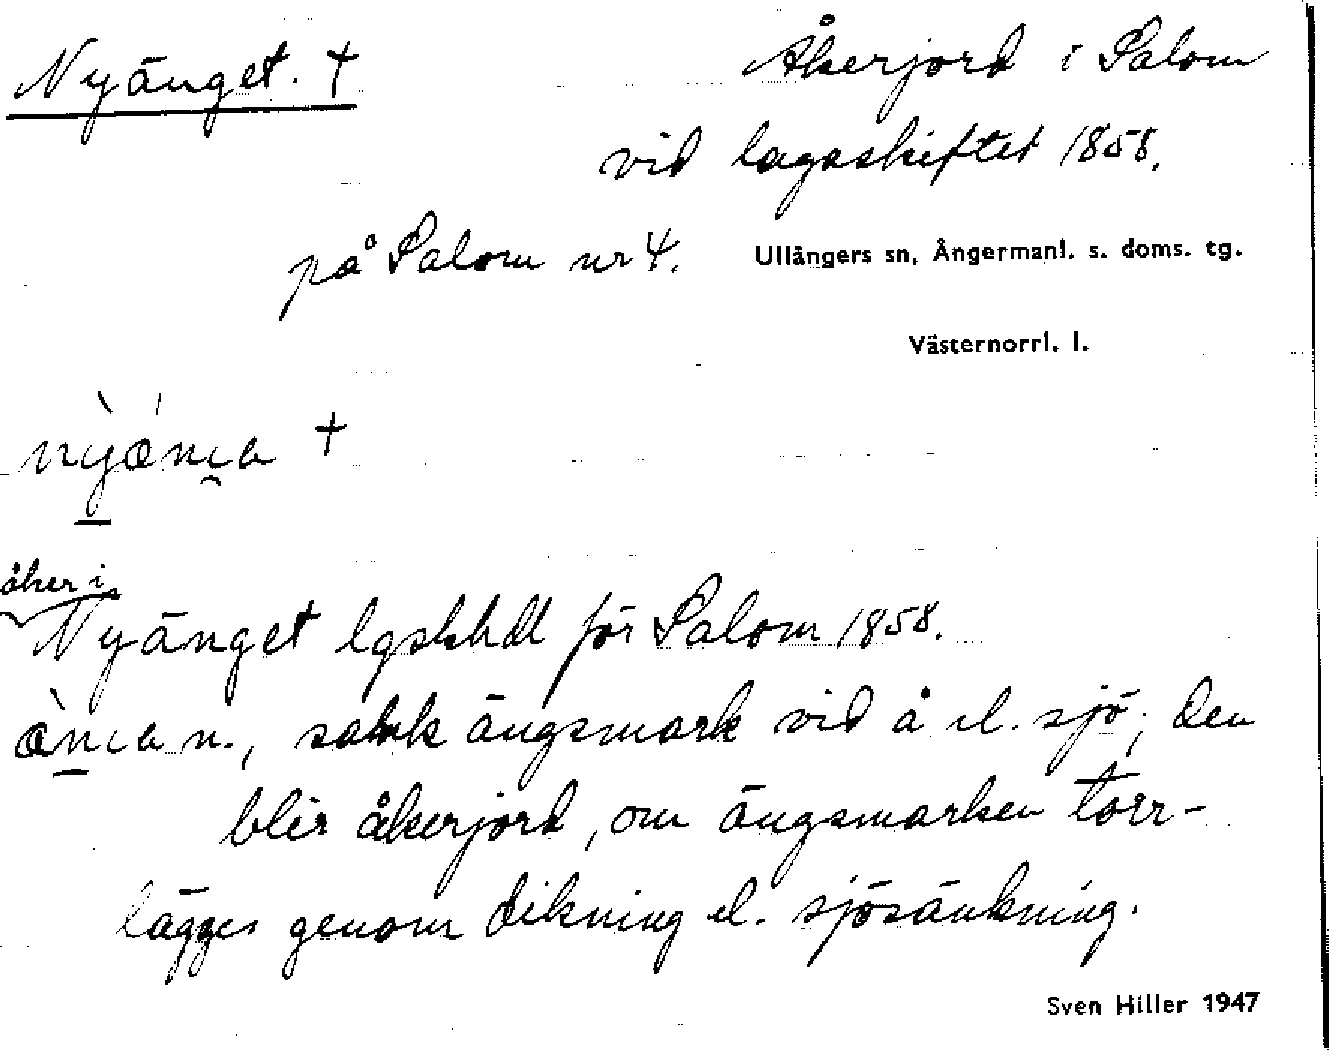 Nyänget. † Åkerjord i Salom
vid lagaskiftet 1858.
på Salom nr 4. Ullångers sn, Ångermanl. s. doms. tg.
Västernorrl. l.
†
åker i
Nyänget lgskhdl för Salom 1858.
n., sank ängsmark vid å el. sjö; den
blir åkerjord, om ängsmarken torr-
lägges genom dikning el. sjösänkning.
Sven Hiller 1947